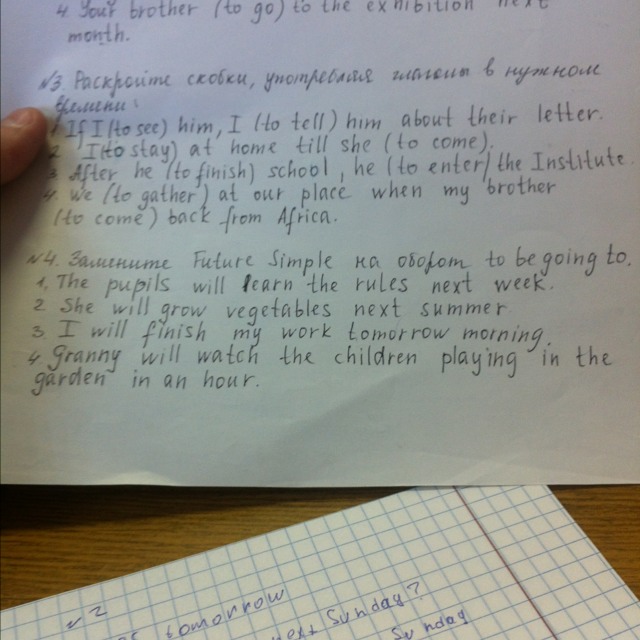 4. Your brother (to go) to the exhibition next
month.
№3. Раскройте скобки, употребляя глаголы в нужном
времени:
1. If I (to see) him, I (to tell) him about their letter.
2. I (to stay) at home till she (to come).
3. After he (to finish) school, he (to enter) the Institute.
4. We (to gather) at our place when my brother
(to come) back from Africa.
№4. Замените Future Simple на оборот to be going to.
1. The pupils will learn the rules next week.
2. She will grow vegetables next summer
3. I will finish my work tomorrow morning.
4. Granny will watch the children playing in the
garden in an hour.
№2
tomorrow
next Sunday?
Sunday